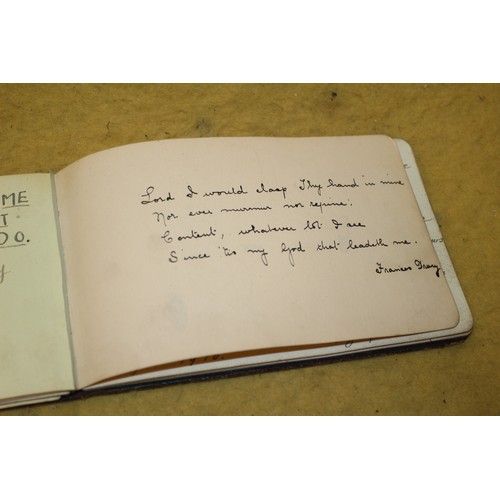 ME
T
DO.
Lord I would clasp Thy hand in mine
Nor ever murmur nor repine.
Content, whatever lot I see
Since 'tis my God that leadeth me.
Frances
1910.